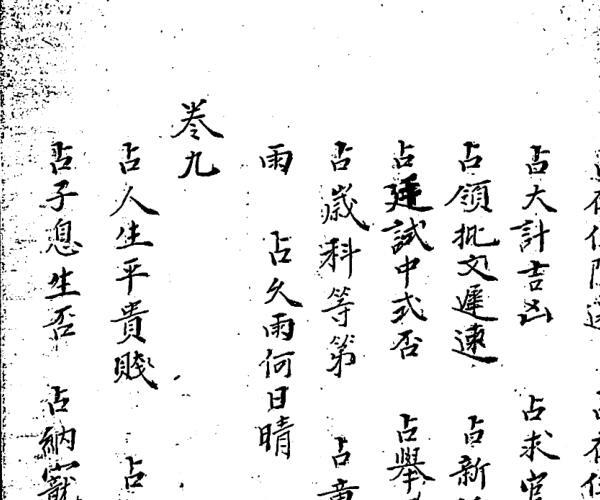 占大計吉凶 占求官
占領批文遲速 占新
占廷試中式否 占舉
占歲科等第 占童
雨 占久雨何日晴
卷九
占人生平貴賤 占
占子息生否 占納寵